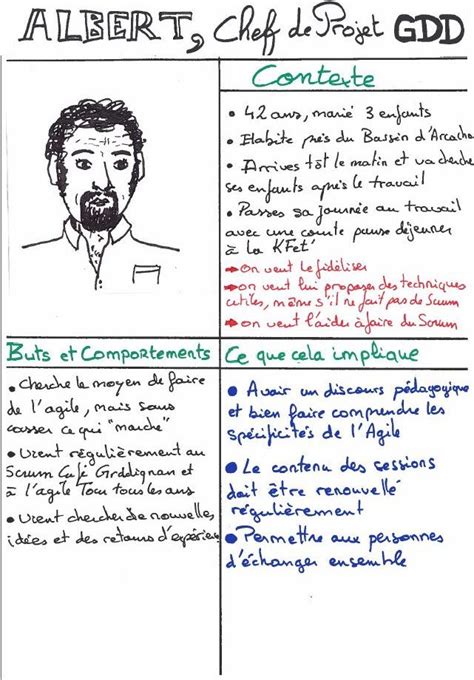 ALBERT, Cheff de Projet GDD
Contexte
• 42 ans, marié 3 enfants
• Habite près du Bassin d'Arcacho
• Arrives tôt le matin et va cherche
ses enfants après le travail
• Passes sa journée au travail
avec une courte pause déjeuner
à la KFet'
➡on veut le fidéliser
➡on veut lui proposer des techniques
utiles, même s'il ne fait pas de Scrum
➡on veut l'aider à faire du Scrum
Buts et Comportements
• Cherche le moyen de faire
de l'agile, mais sans
casser ce qui "marche"
• Vient régulièrement au
Scrum Café Graddignan et
à l'agile Tour tous les ans
• Vient chercher de nouvelles
idées et des retours d'expérien
Ce que cela implique
• Avoir un discours pédagogique
et bien faire comprendre les
spécificités de l'Agile
• Le contenu des sessions
doit être renouvellé
régulièrement
• Permettre aux personnes
d'échanger ensemble